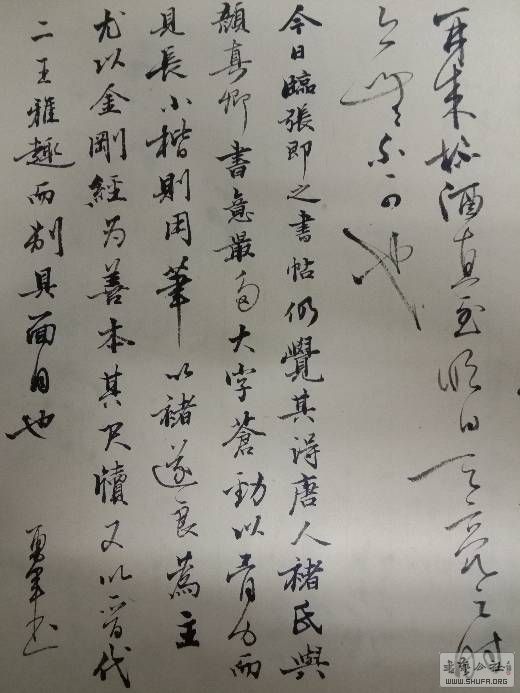 酒直至明日天亮之时
可也
今日臨張即之書帖仍覺其得唐人褚氏與
顏真卿書意最多大字蒼勁以骨力而
見長小楷則用筆以褚遂良為主
尤以金剛經为善本其尺牘又以晋代
二王雅趣而制具面目也
书艺公社
WWW.SHUFA.ORG